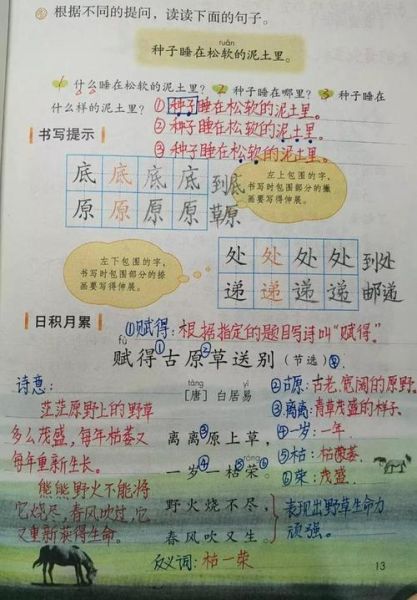 根据不同的提问，读读下面的句子。
ruǎn
种子睡在松软的泥土里。
1 什么睡在松软的泥土里？ 2 种子睡在哪里？ 3 种子睡在
什么样的泥土里？ ①种子睡在松软的泥土里。
②种子睡在松软的泥土里。
③种子睡在松软的泥土里。
书写提示
底 底 底 底 到底
原 原 原 原 草原
左上包围的字，
书写时包围部分的撇
画要写得伸展。
左下包围的字，
书写时包围部分的捺
画要写得伸展。
处 处 处 处 到处
递 递 递 递 邮递
日积月累
①赋得：根据指定的题目写诗叫“赋得”。
fù
赋得①古原②草送别（节选）
táng yì
［唐］白居易
诗意：
茫茫原野上的野草
多么茂盛，每年枯萎又
每年重新生长。
熊熊野火不能将
它烧尽，春风吹过，它
又重新获得生命。
离离③原上草，
róng
一岁④一枯⑤荣⑥。
野火烧不尽，
春风吹又生。
②古原：古老、宽阔的原野。
③离离：青草茂盛的样子。
④一岁：一年。
⑤枯：枯萎。
⑥荣：茂盛。
表现出野草生命力
顽强。
反义词：枯—荣
13